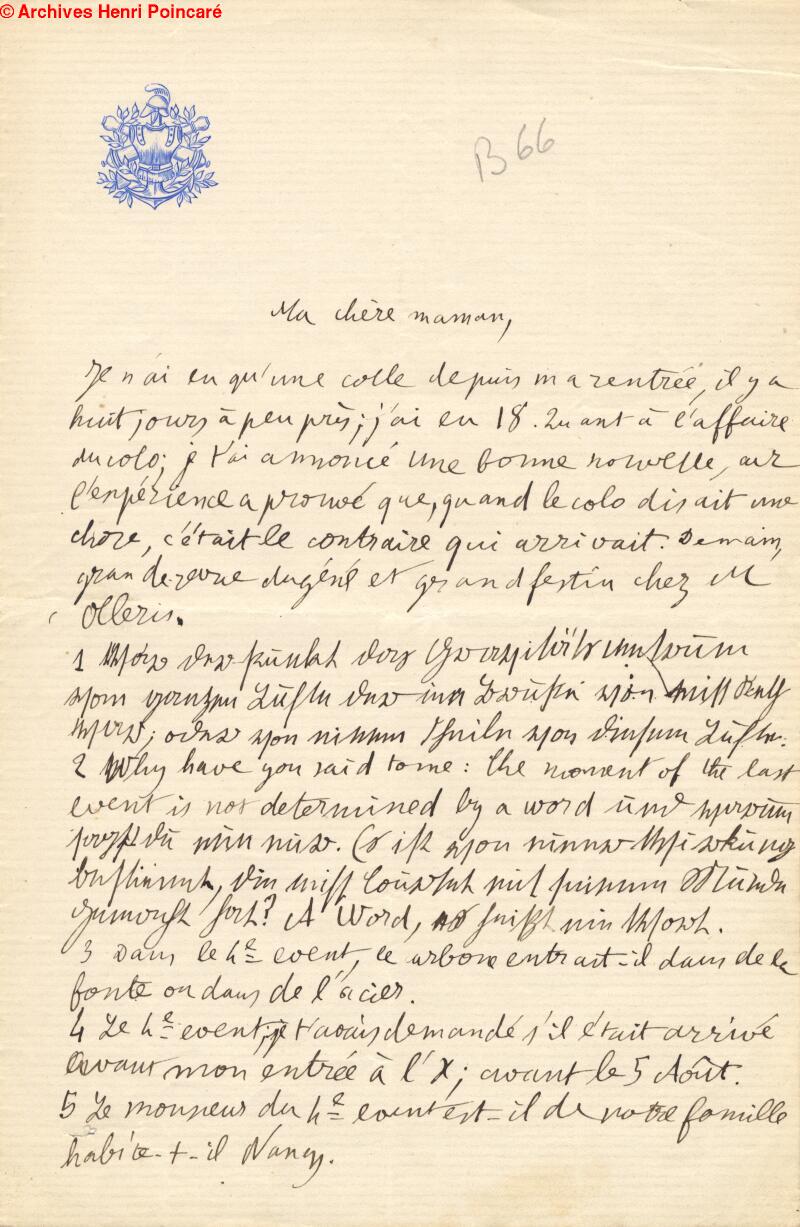 © Archives Henri Poincaré
B 66
Ma chère maman,
Je n'ai eu qu'une colle depuis ma rentrée, il y a
huit jours à peu près; j'ai eu 18. Quant à l'affaire
du colo; je t'ai annoncé une bonne nouvelle, car
l'expérience a prouvé que, quand le colo disait une
chose, c'était le contraire qui arrivait. Demain,
grande revue du géné et grand festin chez M
Olleris.
1 War der Punkt des
vom ganzen Luft der in
war; oder von einem Theile von diesem Luft.
2 Why have you said to me: the moment of the last
event is not determined by a word und warum
sagst du mir nur. Es ist von einer Wirkung
bestimmt, die nicht mit seinem Munde
gemacht hat? A Word, es heißt ein Wort.
3 Dans le h^e event, le carbone entrait-il dans de la
fonte ou dans de l'acier.
4 Le h^e event; je t'avais demandé s'il était arrivé
avant mon entrée à l'X; avant le 5 Août.
5 Le monsieur du h^e event est-il de notre famille
habite-t-il Nancy.